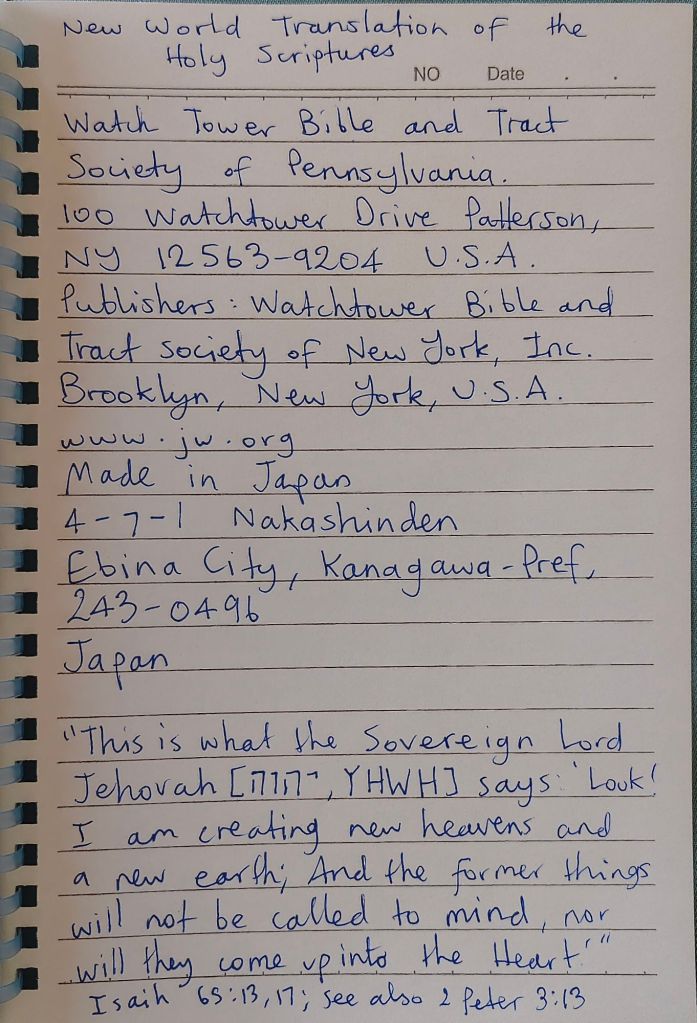 New World Translation of the
Holy Scriptures
NO Date . .
Watch Tower Bible and Tract
Society of Pennsylvania.
100 Watchtower Drive Patterson,
NY 12563-9204 U.S.A.
Publishers: Watchtower Bible and
Tract society of New York, Inc.
Brooklyn, New York, U.S.A.
www.jw.org
Made in Japan
4-7-1 Nakashinden
Ebina City, Kanagawa-Pref,
243-0496
Japan
"This is what the Sovereign Lord
Jehovah [יהוה, YHWH] says: 'Look!
I am creating new heavens and
a new earth; And the former things
will not be called to mind, nor
will they come up into the Heart.'"
Isaih 65:13,17; see also 2 Peter 3:13